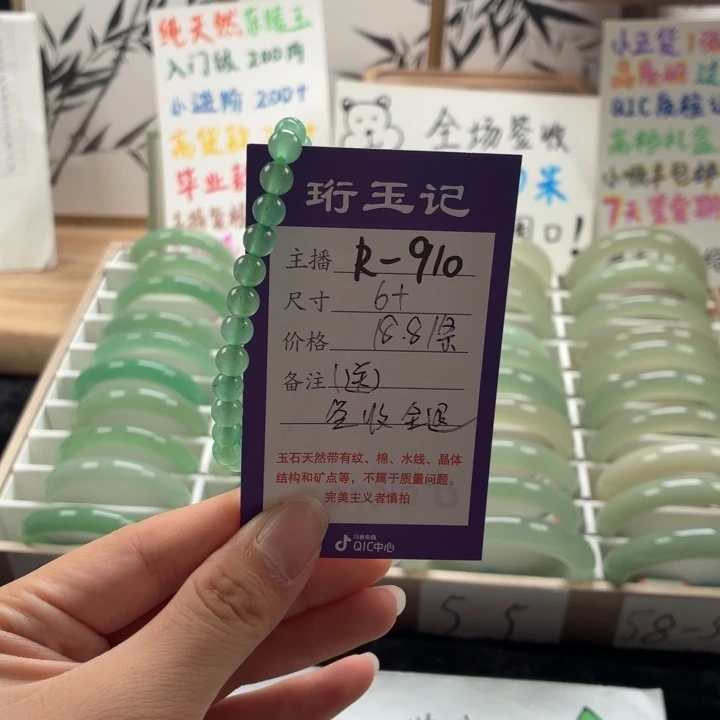 纯天然东陵玉
入门级 200内
小进阶 200+
高货款
毕业款
全场签收
小豆货
品质
QIC质检
高档礼盒
7天
珩玉记
主播 R-910
尺寸 6+
价格 18.8/条
备注 (送)
签收 全退
玉石天然带有纹、棉、水线、晶体
结构和矿点等,不属于质量问题。
完美主义者慎拍
抖音电商
QIC中心
55
58-